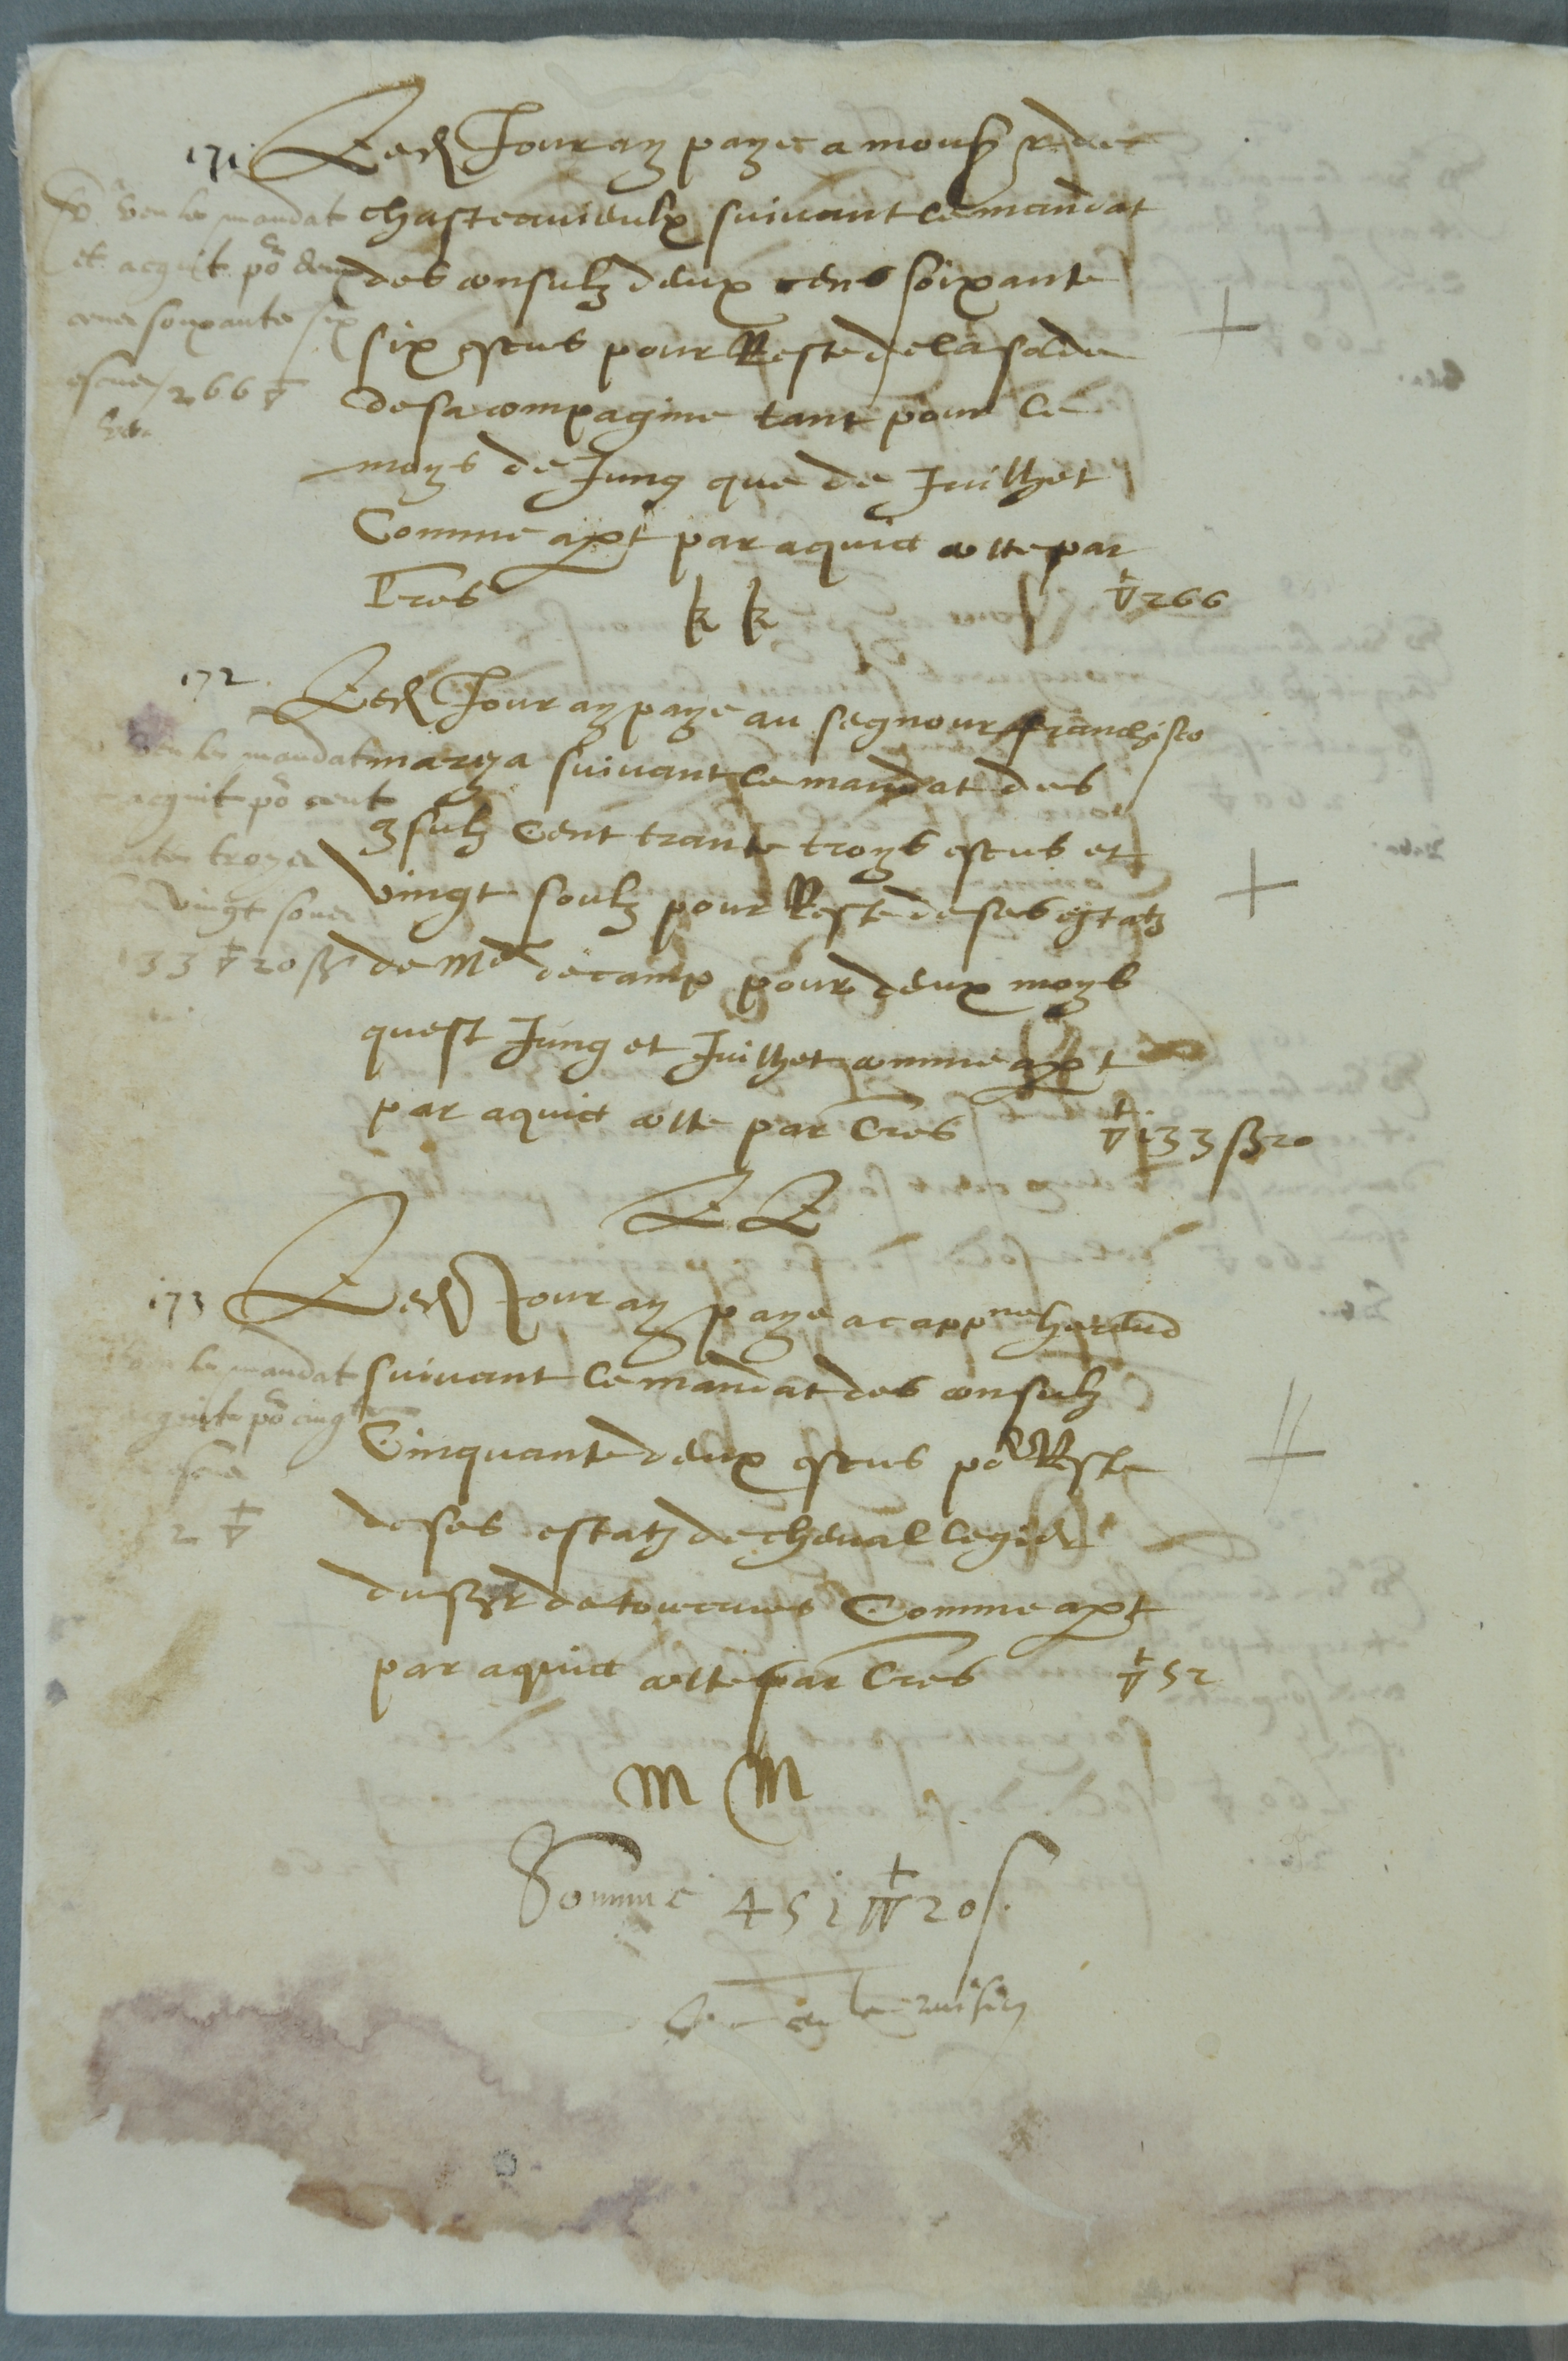 171 Led Jour ay paye a mons r de
chasteauvieulx suivant le mandat
des consulz deux cens soixante
six escus pour Reste de la solde
de sa compagnie tant pour le
moys de Jung que de Juilhet
Comme apt par aquict cotte par
Lres k k ∇ 266
Veu le mandat
et acquit po deux
cens soixante six
escus / 266 ∇
172 Led Jour ay paye au segnour franchisco
marya suivant le mandat des
9sulz Cent trante troys escus et
vingt soulz pour Reste de ses estatz
de Me de camp pour deux moys
quest Jung et Juilhet comme apt
par aquict cotte par Lres ∇ 133 ß 20
LL
veu le mandat
acquit po cent
troys
vingt soues
133 ∇ 20 ß
173 Led Jour ay paye a cappne
suivant le mandat des consulz
Cinquante deux escus po Reste
de ses estatz de cheval legier
du sr de tournes Comme apt
par aquict cotte par Lres ∇ 52
M M
veu le mandat
acquit po cinq
52 ∇
Somme 451 ∇ 20 s.